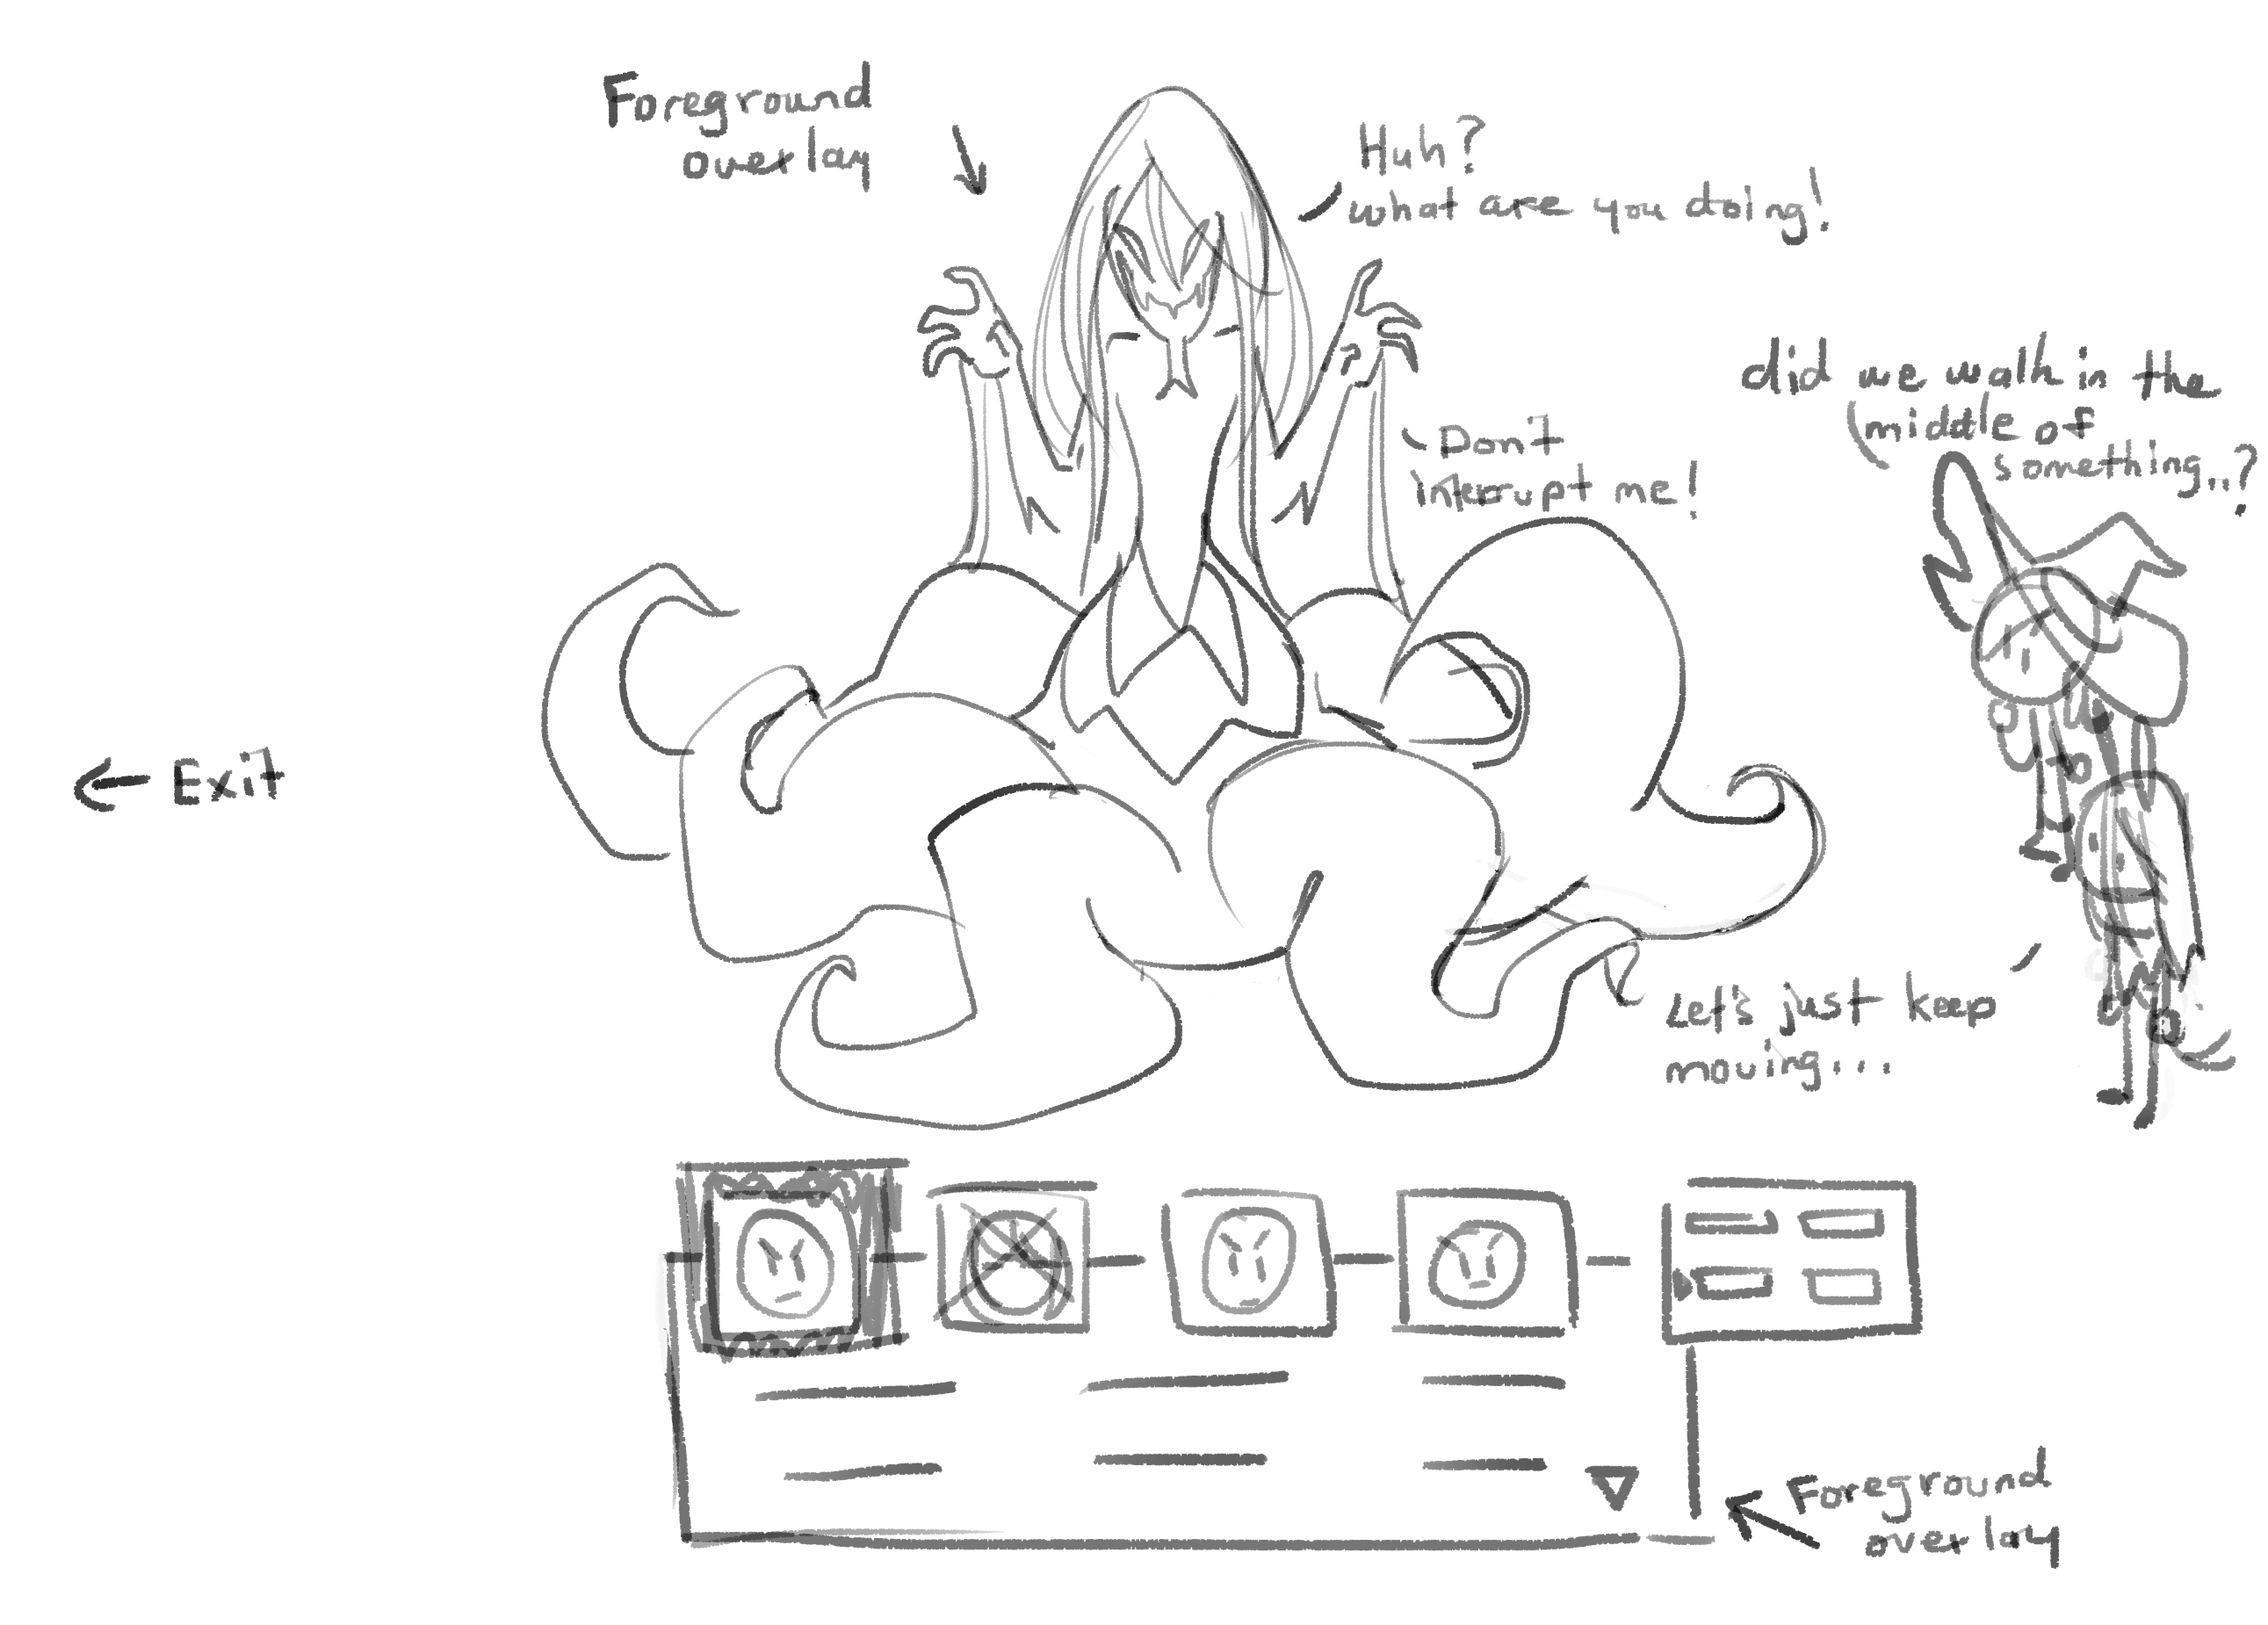 Foreground
overlay
Huh?
what are you doing!
did we walk in the
middle of
something..?
Don't
interrupt me!
← Exit
Let's just keep
moving...
Foreground
overlay